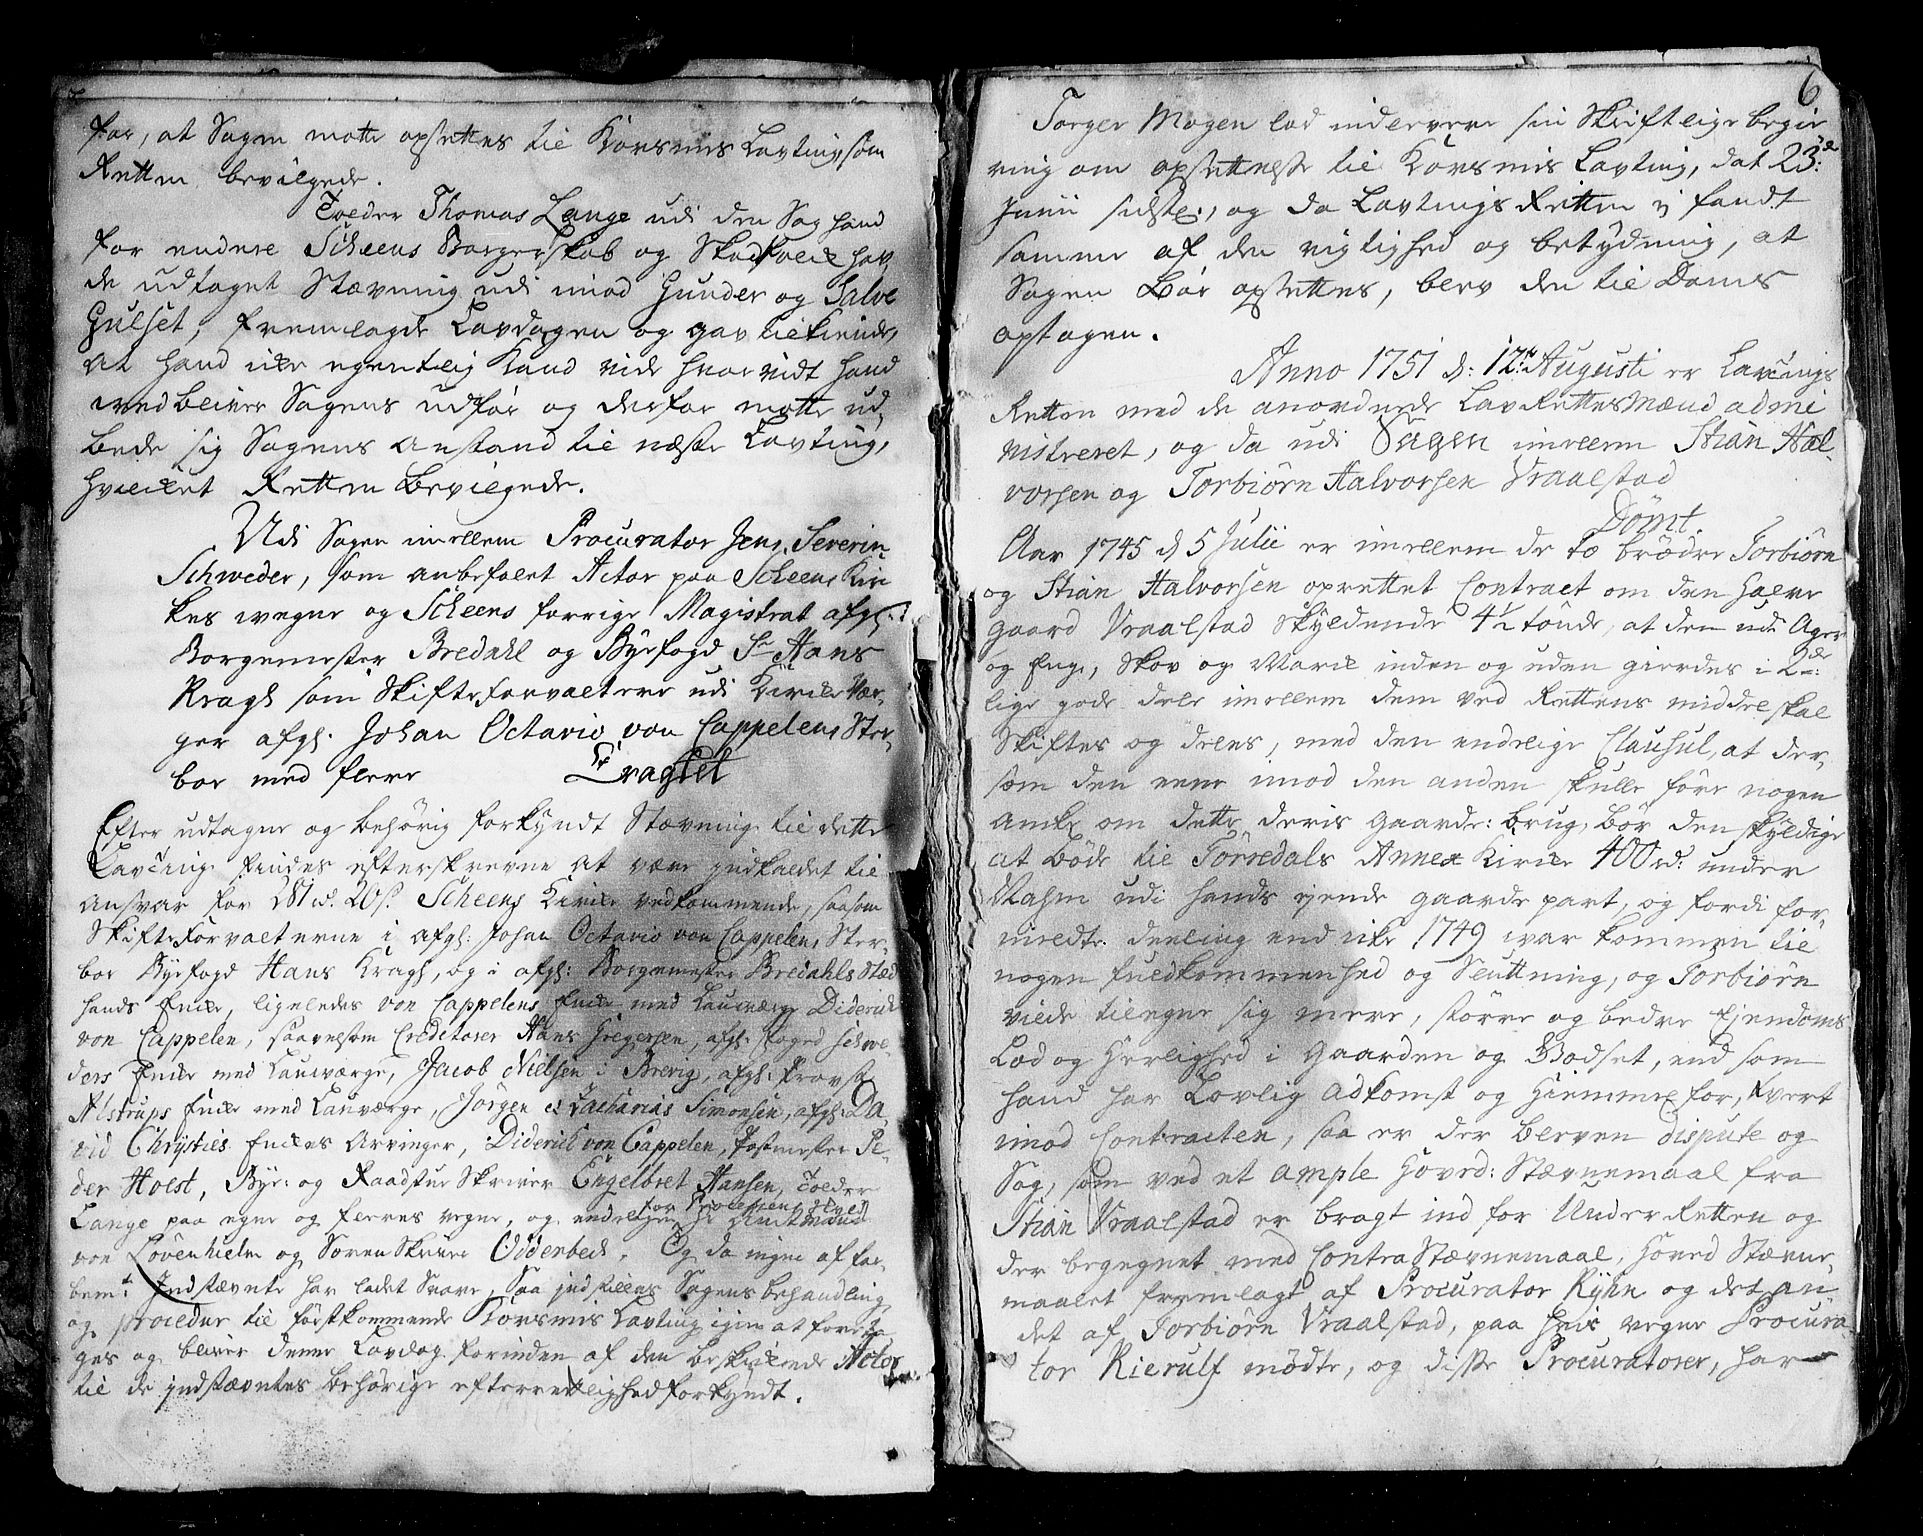 for, at Sagen motte opsettes til Korsmis Lavting som
Retten bevilgede.
Tolder Thomas Lange udi den Sag hand
for endere Scheens Borgerskab og Skadfolck hav
de udtaget Stævning udi imod Gunder og Salve
Gulset, fremlagde Lavdagen og gav tilkiende,
at hand icke egentlig kand vide hvorvidt hand
ved bliver Sagens udfør og derfor motte ud,
bede sig Sagens anstand til næste Lavting,
hvilcket Retten Bevilgede.
Udi Sagen imellem Procurator Jens Severin
Schweder, som anbefalet Actor paa Scheens Kir
kes wegne og Scheens forrige Magistrat afgl:
Borgemester Bredahl og Byefogd Sr Hans
Kragh som Skifteforvaltere udi Kircke Vær-
ger afgl. Johan Octavio von Cappelens Ster-
boe med flere Er Eragtet
Efter udtagne og behørig forkyndt Stævning til dette
Lavting findes efterskrevne at være indkaldet til
ansvar for Scheens Kircke vedkommende, saasom
Skifteforvalterne i afgl: Johan Octavio von Cappelens Ster-
boe Byefogd Hans Kragh, og i afgl: Borgemester Bredahls Sted
hands Encke, ligeledes von Cappelens Encke med Lauværge Diderich
von Cappelen, saavelsom Creditorer Hans Gregersen, afgl: foged Schwe-
ders Encke med Lauværge, Jacob Nielsen i Brevig, afgl: Provst
Alstrups Encke med Lauværge, Jörgen et Zacharias Simonsen, afgl: Da-
vid Chrysties Enckes Arvinger, Diderich von Cappelen, Postmester Pe-
der Holst, Bye: og Raadstue Skriver Engelbret Hansen, Tolder
Lange paa egne og fleres vegne, og endelig for Processen Hr Amtmand
von Lövenhielm og Sorenskriver Odderbeck. Og da ingen af for
bemt Indstævnte har ladet Svare, Saa indstilles Sagens behandling
og procedur til førstkommende Korsmis Lavting igien at foreta-
ges og bliver denne Lavdag forinden af den beskickede Actor
til de indstævntes behörige efterrettlighed forkyndt.
6
Torger Mogen lod indlevere sin Skriftlige begie
ring om opsettelse til Korsmis Lavting, dat 23de
Junii sidstl:, og da Lavtings Retten ej fandt
samme af den vigtighed og betydning, at
Sagen bør opsettes, blev den til Doms
optagen.
Anno 1751 d: 12te Augusti er Lavtings
Retten med de anordnede LavRettesmænd admi
nistreret, og da udi Sagen imellem Stian Hal-
vorsen og Torbiörn Halvorsen Vraalstad
Dömt.
Aar 1745 d 5 Julii er imellem de to brödre Torbiörn
og Stian Halvorsen oprettet Contract om den halve
gaard Vraalstad Skyldende 4½ tönde, at den udi Ager
og Eng, Skov og Marck inden og uden gierdes i 2de
lige gode dele imellem dem ved Rettens middel skal
Skiftes og deles, med den endelige Clausul, at der-
som den eene imod den anden skulle före nogen
anke om dette deris gaarde: brug, bör den skyldige
at böde til Tørredals Annex Kircke 400 rd. under
Vahm udi hands ejende gaarde part, og fordi for-
meldte deeling end icke 1749 war kommen til
nogen fuldkommenhed og Sluttning, og Torbiörn
vilde tilegne sig mere, större og bedre Ejendoms
Lod og Herlighed i gaarden og Bödset, end som
hand har Lovlig adkomst og Hiemmel for, tvert
imod Contracten, saa er der bleven dispute og
Sag, som ved et ample Hoved: Stævnemaal fra
Stian Vraalstad er bragt ind for UnderRetten og
der begegnet med ContraStævnemaal, Hoved Stævne-
maalet fremlagt af Procurator Ryhn og det an
det af Torbiörn Vraalstad, paa hvis vegne Procura-
tor Kierulf mödte, og disse Procuratorer, har